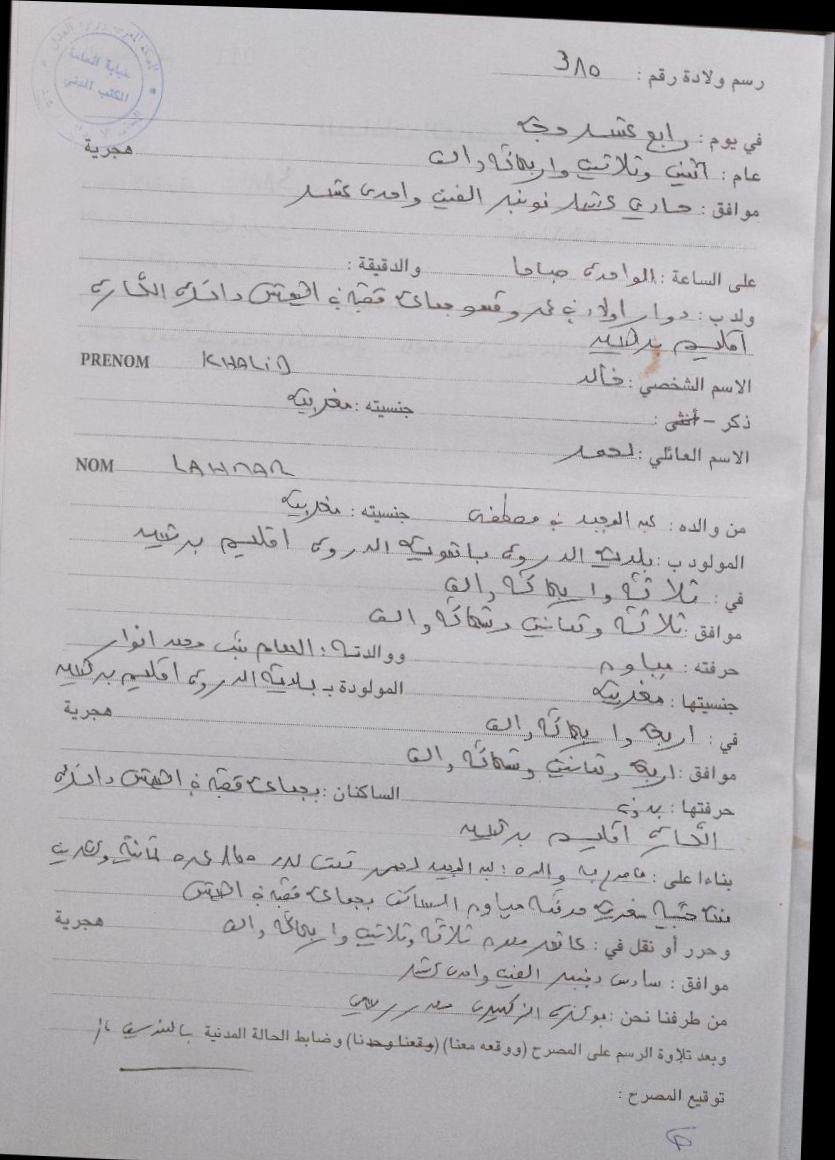 رسم ولادة رقم : 380
نيابة العامة
في يوم : رابع عشر ذي حجة
عام : اثنين وثلاثين واربعمائة والف هجرية
موافق : حادي عشر نونبر الفين واحدى عشر
على الساعة : الواحدة صباحا والدقيقة :
ولد ب : دوار اولاد جماعة قصبة بن امشيش دائرة
اقليم برشيد
الاسم الشخصي : خالد KHALID PRENOM
ذكر - أنثى : جنسيته : مغربية
الاسم العائلي : لحمر
LAHMAR NOM
من والده : عبد المجيد بن مصطفى جنسيته : مغربية
المولود ب : بلدية الدروة اقليم برشيد
في : ثلاثة واربعمائة والف
موافق : ثلاثة وثمانين وتسعمائة والف
حرفته : مياوم ووالدته : بنت محمد انوار
جنسيتها : مغربية المولودة ب بلدية الدروة اقليم برشيد
في : اربعة واربعمائة والف هجرية
موافق : اربعة وثمانين وتسعمائة والف
حرفتها : بدون الساكنان : بجماعة قصبة بن امشيش دائرة
اقليم برشيد
بناءا على : ما صرح به والده : عبد المجيد لحمر عمره ثمانية وعشرين
سنة جنسية مغربية حرفته مياوم الساكن بجماعة قصبة بن امشيش
وحرر أو نقل في : عاشر محرم ثلاثة وثلاثين واربعمائة والف هجرية
موافق : سادس دجنبر الفين واحدى عشر
من طرفنا نحن :
وبعد تلاوة الرسم على المصرح (ووقعه معنا) (وقعنا وحدنا) وضابط الحالة المدنية
توقيع المصرح :